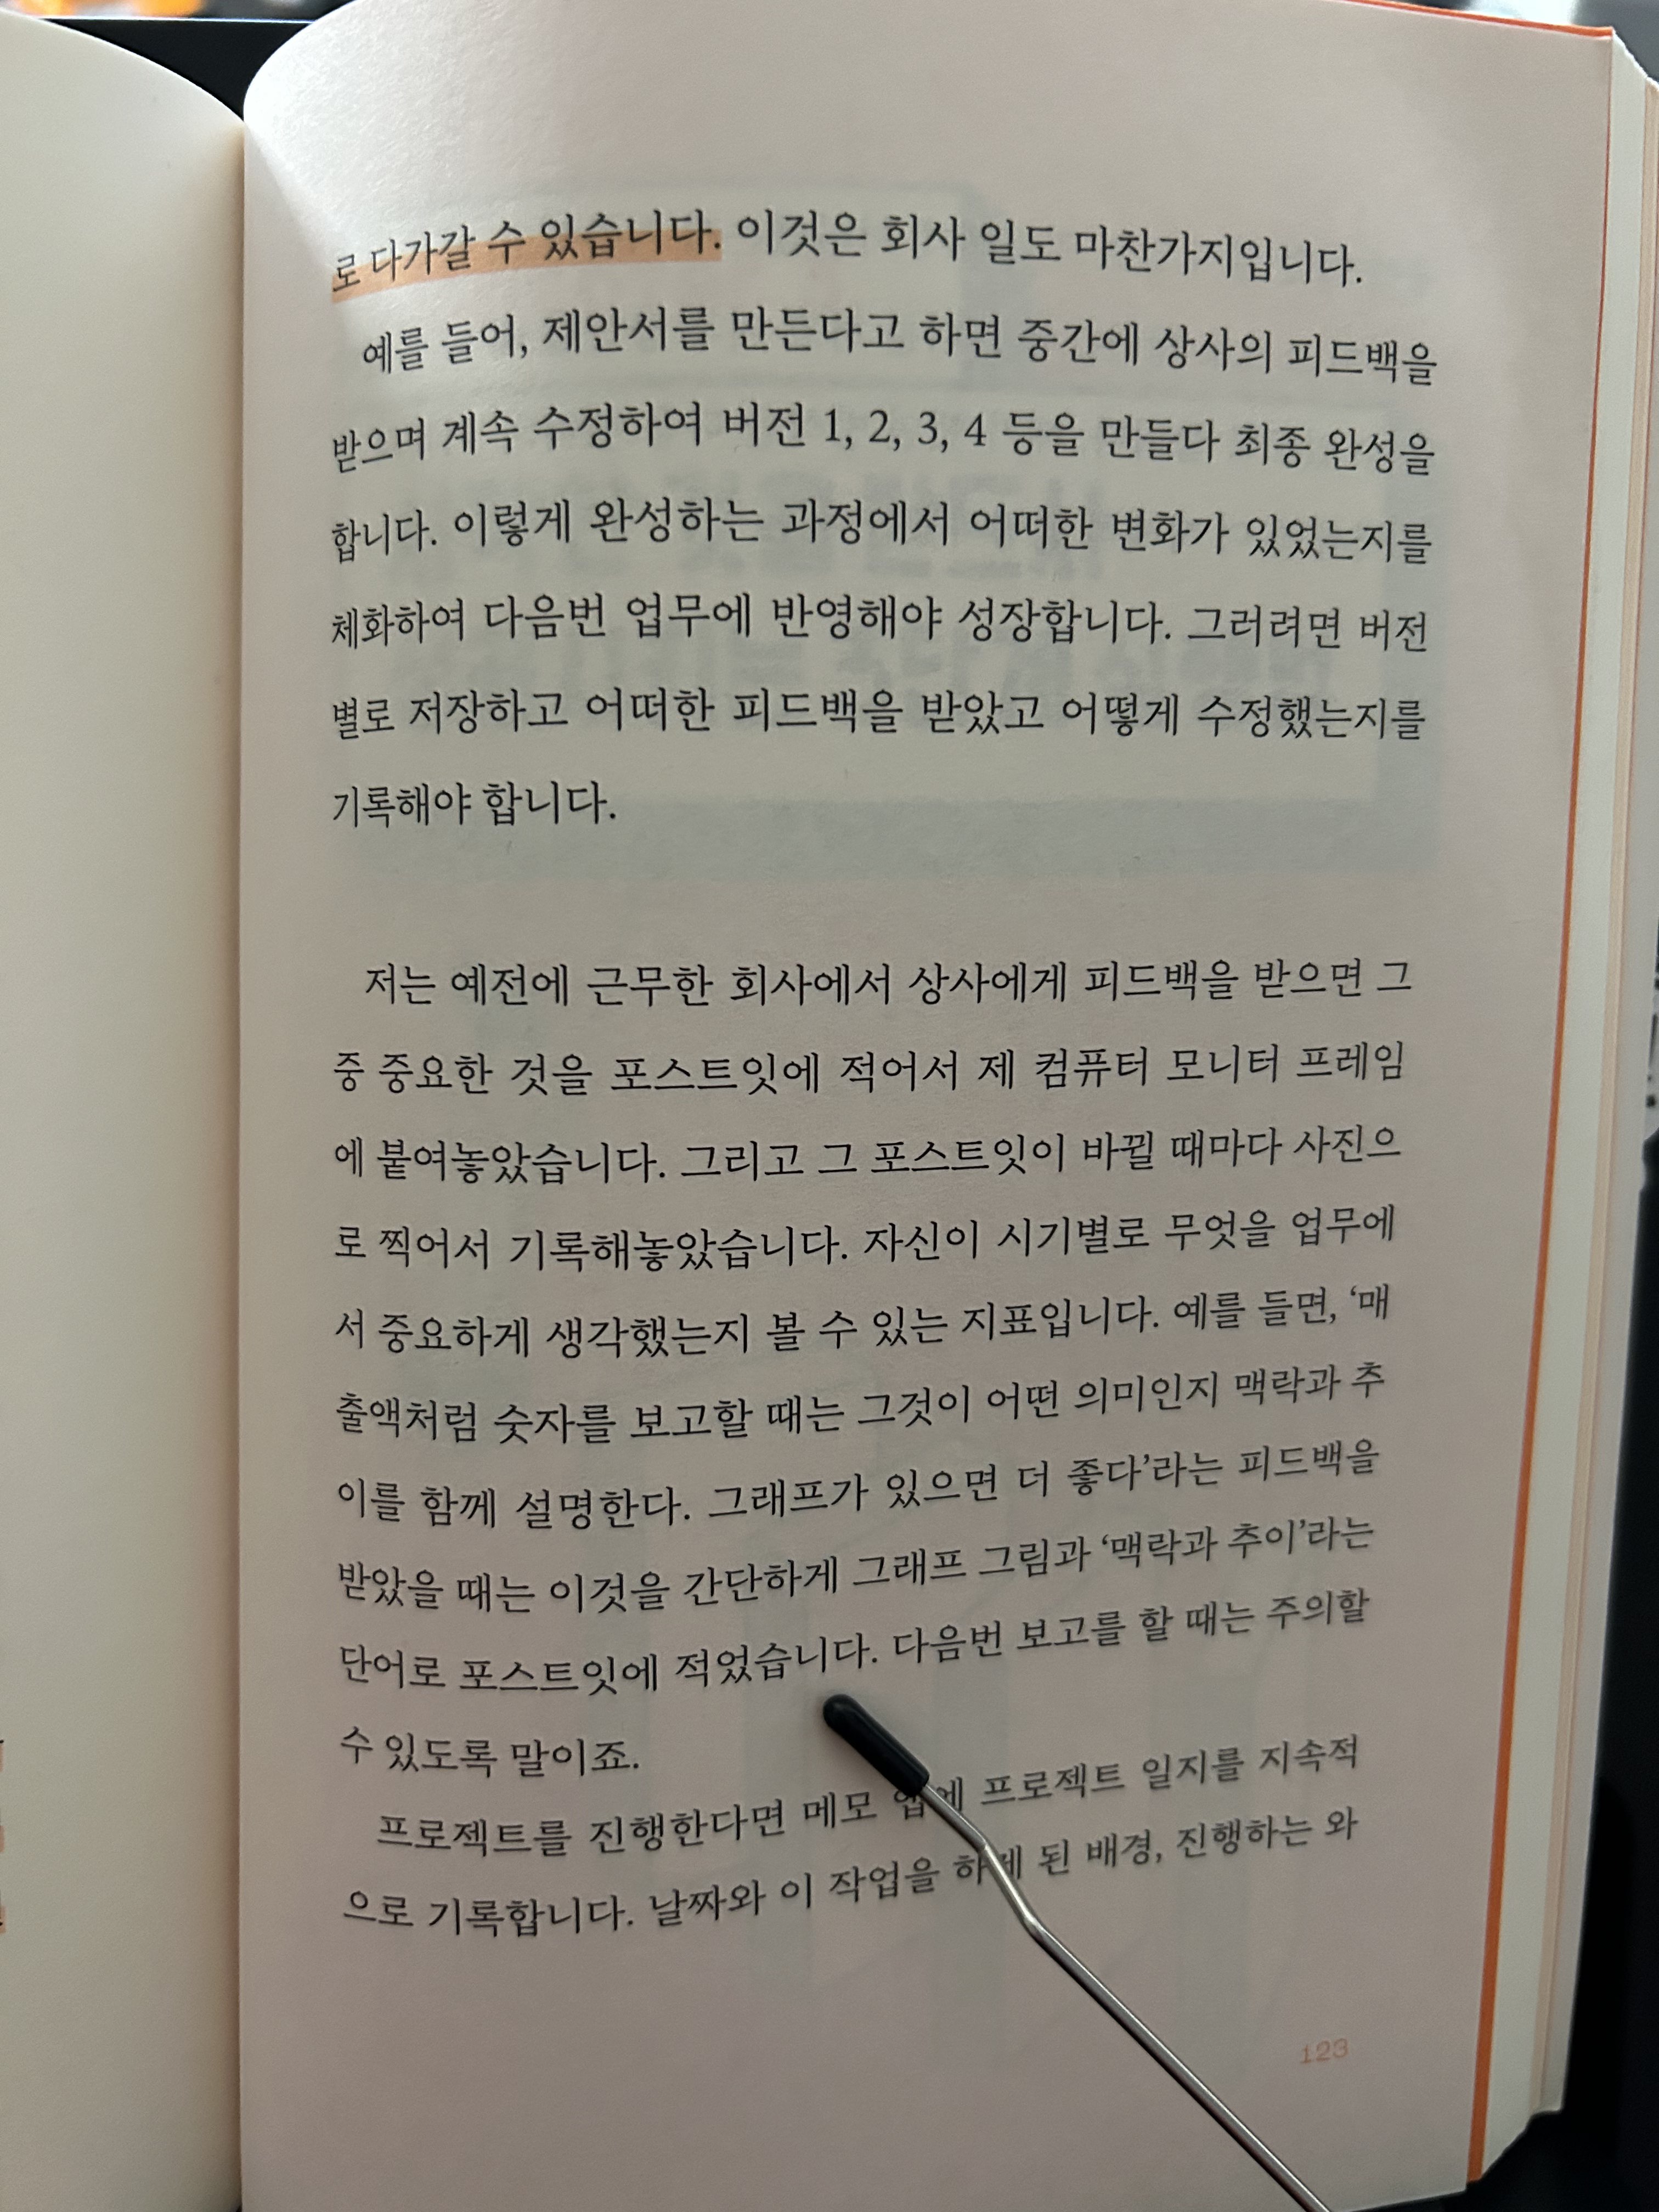 로 다가갈 수 있습니다. 이것은 회사 일도 마찬가지입니다.
예를 들어, 제안서를 만든다고 하면 중간에 상사의 피드백을
받으며 계속 수정하여 버전 1, 2, 3, 4 등을 만들다 최종 완성을
합니다. 이렇게 완성하는 과정에서 어떠한 변화가 있었는지를
체화하여 다음번 업무에 반영해야 성장합니다. 그러려면 버전
별로 저장하고 어떠한 피드백을 받았고 어떻게 수정했는지를
기록해야 합니다.
저는 예전에 근무한 회사에서 상사에게 피드백을 받으면 그
중 중요한 것을 포스트잇에 적어서 제 컴퓨터 모니터 프레임
에 붙여놓았습니다. 그리고 그 포스트잇이 바뀔 때마다 사진으
로 찍어서 기록해놓았습니다. 자신이 시기별로 무엇을 업무에
서 중요하게 생각했는지 볼 수 있는 지표입니다. 예를 들면, ‘매
출액처럼 숫자를 보고할 때는 그것이 어떤 의미인지 맥락과 추
이를 함께 설명한다. 그래프가 있으면 더 좋다’라는 피드백을
받았을 때는 이것을 간단하게 그래프 그림과 ‘맥락과 추이’라는
단어로 포스트잇에 적었습니다. 다음번 보고를 할 때는 주의할
수 있도록 말이죠.
프로젝트를 진행한다면 메모 앱에 프로젝트 일지를 지속적
으로 기록합니다. 날짜와 이 작업을 하게 된 배경, 진행하는 와
123